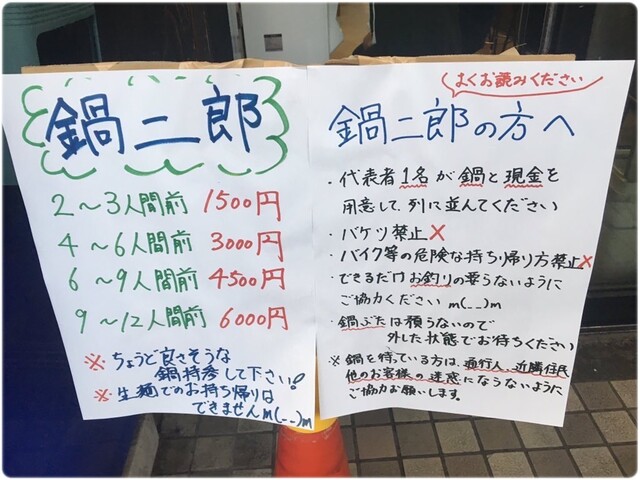 鍋二郎
2～3人間前 1500円
4～6人間前 3000円
6～9人間前 4500円
9～12人間前 6000円
※ちょうど良さそうな
鍋持参して下さい!
※生麺でのお持ち帰りは
できませんm(__)m
よくお読みください
鍋二郎の方へ
・代表者1名が鍋と現金を
用意して列に並んでください
・バケツ禁止×
・バイク等の危険な持ち帰り方禁止×
・できるだけお釣りの要らないように
ご協力くださいm(__)m
・鍋ぶたは預らないので
外した状態でお待ちください
※鍋を待っている方は、通行人、近隣住民
他のお客様の迷惑にならないように
ご協力お願いします。